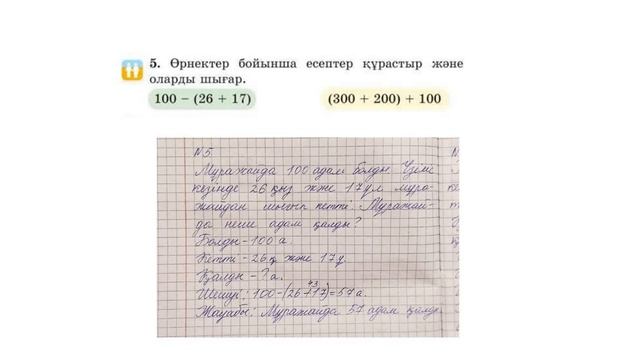 5. Өрнектер бойынша есептер құрастыр және
оларды шығар.
100 − (26 + 17)
(300 + 200) + 100
№5.
Мұражайда 100 адам болды. Үзіліс
кезінде 26 қыз және 17 ұл мұра-
жайдан шығып кетті. Мұражай-
да неше адам қалды?
Болды – 100 а.
Кетті – 26 қ және 17 ұ.
Қалды – ? а.
43
Шешуі: 100-(26+17)=57 а.
Жауабы: Мұражайда 57 адам қалды.